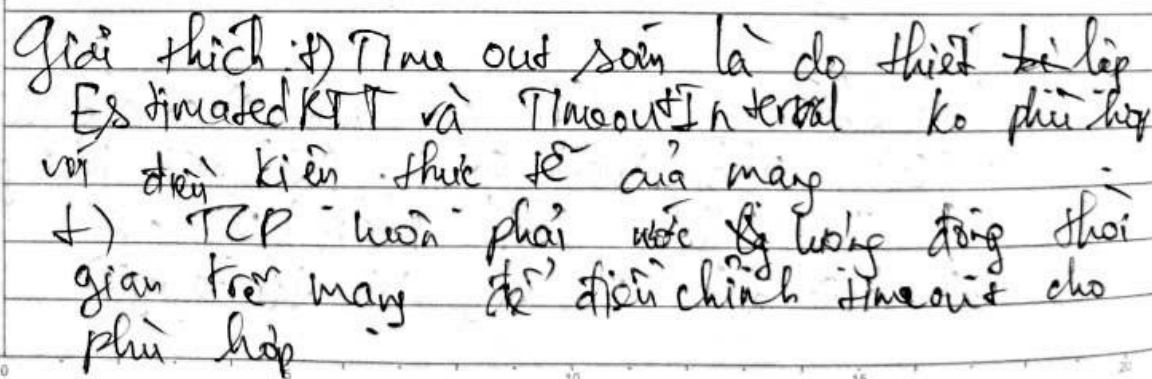 Giải thích: +) Time out sớm là do thiết lập
EstimatedRTT và TimeoutInterval ko phù hợp
với điều kiện thực tế của mạng
+) TCP luôn phải ước lượng động thời
gian trễ mạng để điều chỉnh timeout cho
phù hợp
0 5 10 15 20